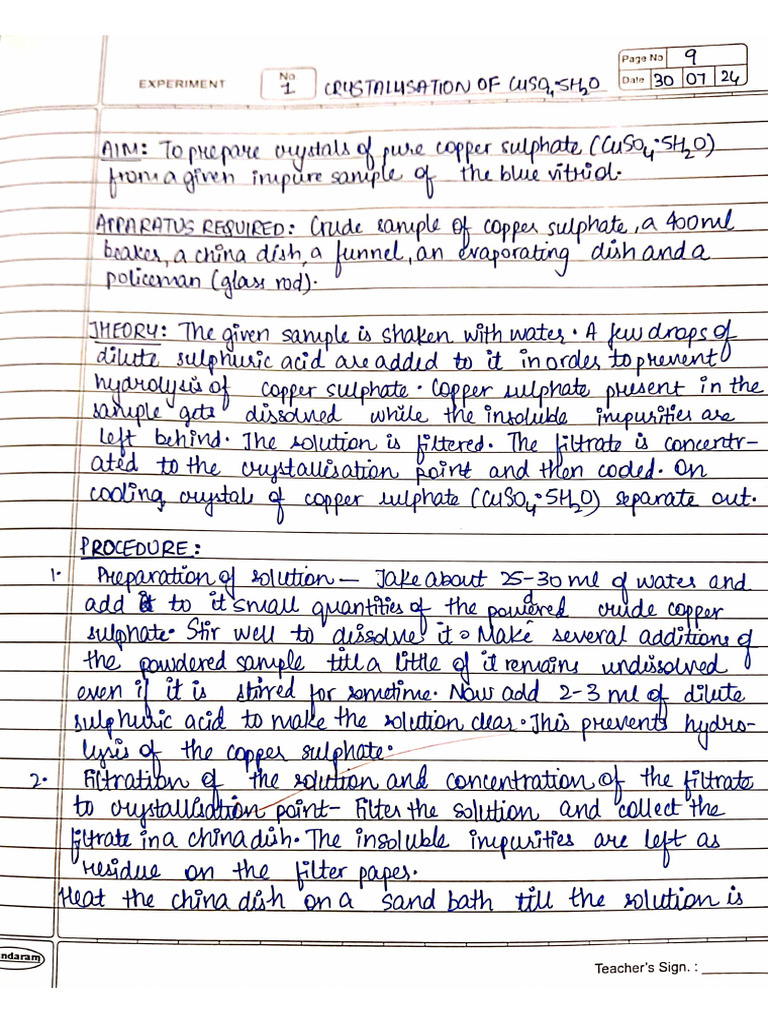 Page No 9
EXPERIMENT No 1 CRYSTALLISATION OF CUSO4.5H2O Date 30 07 24
AIM: To prepare crystals of pure copper sulphate (CuSO4·5H2O)
from a given impure sample of the blue vitriol.
APPARATUS REQUIRED: Crude sample of copper sulphate, a 400ml
beaker, a china dish, a funnel, an evaporating dish and a
policeman (glass rod).
THEORY: The given sample is shaken with water. A few drops of
dilute sulphuric acid are added to it in order to prevent
hydrolysis of copper sulphate. Copper sulphate present in the
sample gets dissolved while the insoluble impurities are
left behind. The solution is filtered. The filtrate is concentr-
ated to the crystallisation point and then cooled. On
cooling crystals of copper sulphate (CuSO4·5H2O) separate out.
PROCEDURE:
1. Preparation of solution — Take about 25-30 ml of water and
add to it small quantities of the powdered crude copper
sulphate. Stir well to dissolve it. Make several additions of
the powdered sample till a little of it remains undissolved
even if it is stirred for sometime. Now add 2-3 ml of dilute
sulphuric acid to make the solution clear. This prevents hydro-
lysis of the copper sulphate.
2. Filtration of the solution and concentration of the filtrate
to crystallisation point- Filter the solution and collect the
filtrate in a china dish. The insoluble impurities are left as
residue on the filter paper.
Heat the china dish on a sand bath till the solution is
ndaram
Teacher's Sign. :